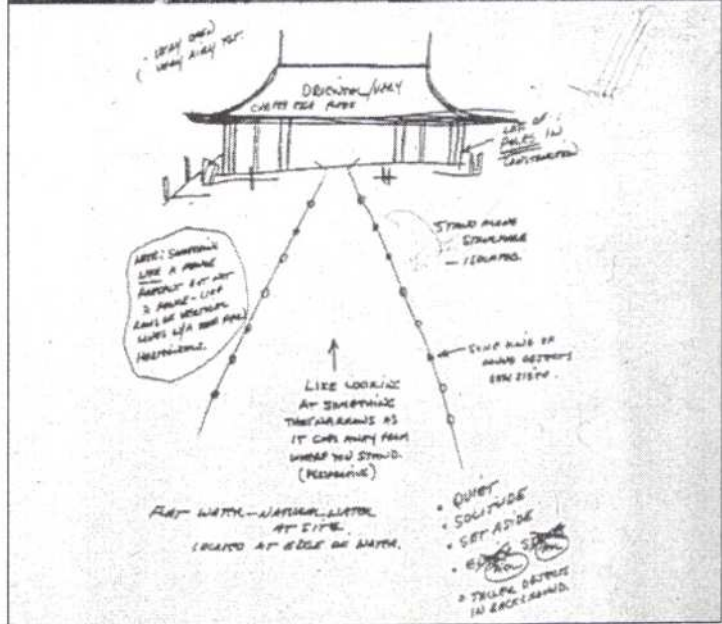 VERY OPEN
VERY AIRY YET.
ORIENTAL/VERY
LOT OF
POLES IN
CONSTRUCTION
STAND ALONE
STRUCTURE
— ISOLATED.
NOTE: SOMETHING
LIKE A FENCE
BUT NOT
A FENCE - LIKE
LINES W/A
HORIZONTALS.
SOME KIND OF
ROUND OBJECTS
EACH SIDE.
LIKE LOOKING
AT SOMETHING
THAT NARROWS AS
IT GOES AWAY FROM
WHERE YOU STAND.
(PERSPECTIVE)
FLAT WATER—NATURAL WATER
AT SITE.
LOCATED AT EDGE OF WATER.
• QUIET
• SOLITUDE
• SET ASIDE
• TALLER OBJECTS
IN BACKGROUND.